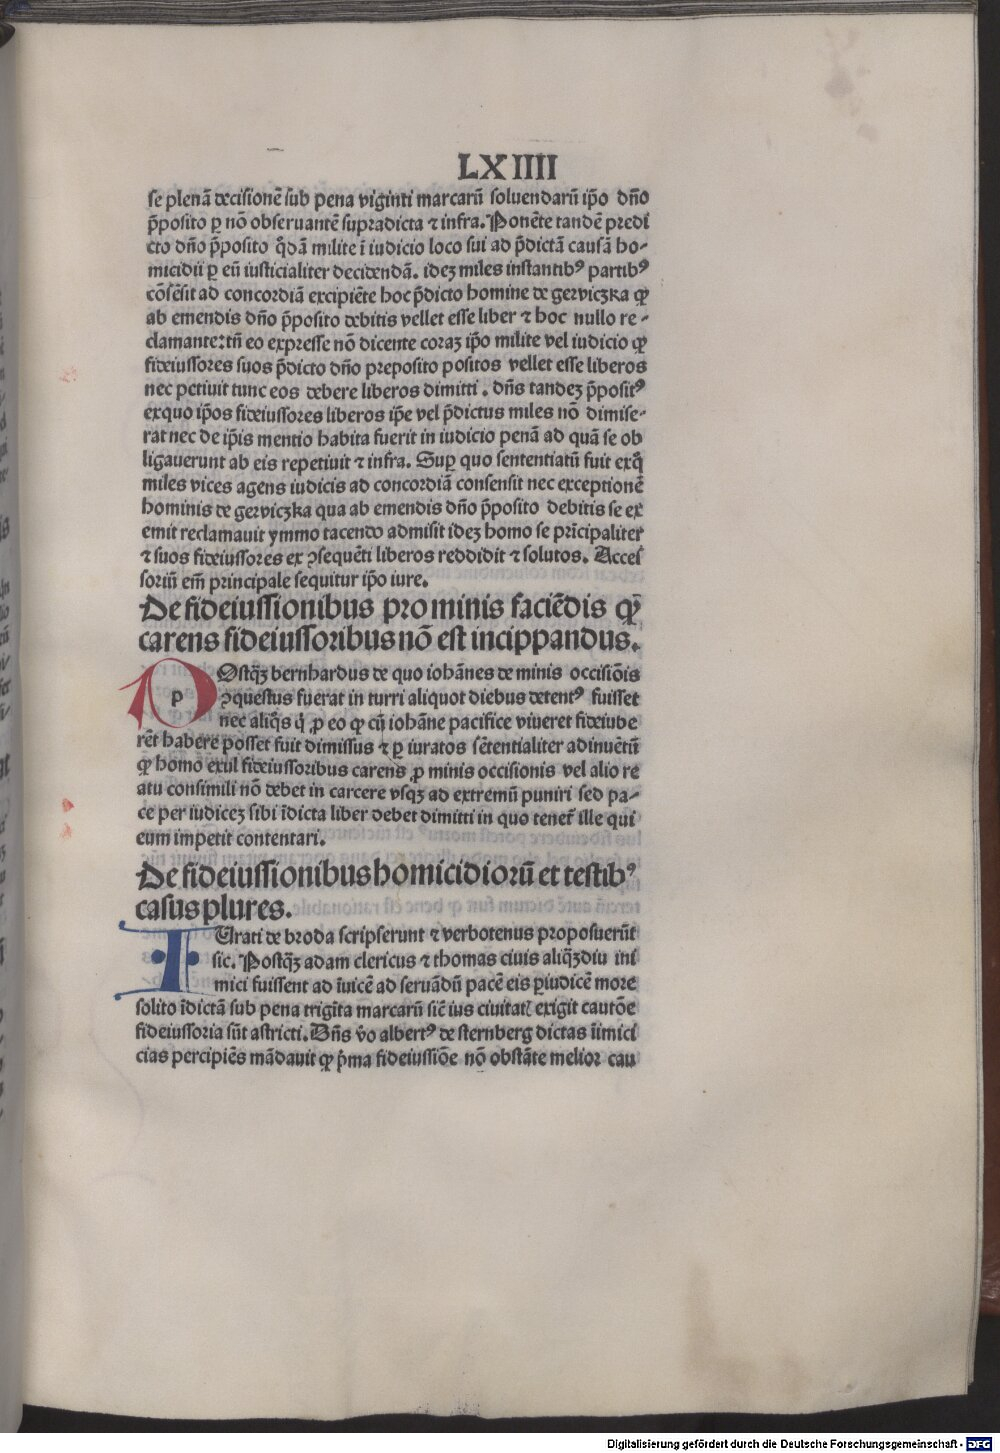 LXIIII
se plenā decisionē sub pena viginti marcarū soluendarū ip̄o dn̄o
p̄posito ꝑ nō obseruantē supradicta ⁊ infra. Ponēte tandē predi
cto dn̄o p̄posito q̄dā milite ī iudicio loco sui ad p̄dictā causā ho-
micidii ꝑ eū iusticialiter decidendā. ideꝫ miles instantibꝰ partibꝰ
cōsēsit ad concordiā excipiēte hoc p̄dicto homine de gerviczka ꝙ
ab emendis dn̄o p̄posito debitis vellet esse liber ⁊ hoc nullo re-
clamante: tn̄ eo expresse nō dicente coraꝫ ip̄o milite vel iudicio ꝙ
fideiussores suos p̄dicto dn̄o preposito positos vellet esse liberos
nec petiuit tunc eos debere liberos dimitti. dn̄s tandeꝫ p̄positꝰ
exquo ip̄os fideiussores liberos ip̄e vel p̄dictus miles nō dimise-
rat nec de ip̄is mentio habita fuerit in iudicio penā ad quā se ob
ligauerunt ab eis repetiuit ⁊ infra. Suꝑ quo sententiatū fuit exq̄
miles vices agens iudicis ad concordiā consensit nec exceptionē
hominis de gerviczka qua ab emendis dn̄o p̄posito debitis se ex
emit reclamauit ymmo tacendo admisit ideꝫ homo se prīcipaliter
⁊ suos fideiussores ex ꝯsequēti liberos reddidit ⁊ solutos. Acces
soriū em̄ principale sequitur ip̄o iure.
De fideiussionibus pro minis faciēdis ꝙ
carens fideiussoribus nō est incippandus.
p
POstqꝫ bernhardus de quo iohānes de minis occisiōis
ꝯquestus fuerat in turri aliquot diebus detentꝰ fuisset
nec aliq̄s q̄ ꝓ eo ꝙ cū iohāne pacifice viueret fideiube
rēt habere posset fuit dimissus ⁊ ꝑ iuratos sētentialiter adinuētū
ꝙ homo exul fideiussoribus carens ꝓ minis occisionis vel alio re
atu consimili nō debet in carcere vsqꝫ ad extremū puniri sed pa-
ce per iudiceꝫ sibi īdicta liber debet dimitti in quo tenet̄ ille qui
eum impetit contentari.
De fideiussionibus homicidiorū et testibꝰ
casus plures.
IUrati de broda scripserunt ⁊ verbotenus proposuerūt
sic. Postqꝫ adam clericus ⁊ thomas ciuis aliqꝫdiu ini
mici fuissent ad īuicē ad seruādū pacē eis ꝑ iudicē more
solito īdictā sub pena trigīta marcarū sic̄ ius ciuitat̄ exigit cautōe
fideiussoria sūt astricti. Dn̄s v̄o albertꝰ de sternberg dictas īimici
cias percipiēs mādauit ꝙ p̄ma fideiussiōe nō obstāte melior cau
Digitalisierung gefördert durch die Deutsche Forschungsgemeinschaft - DFG